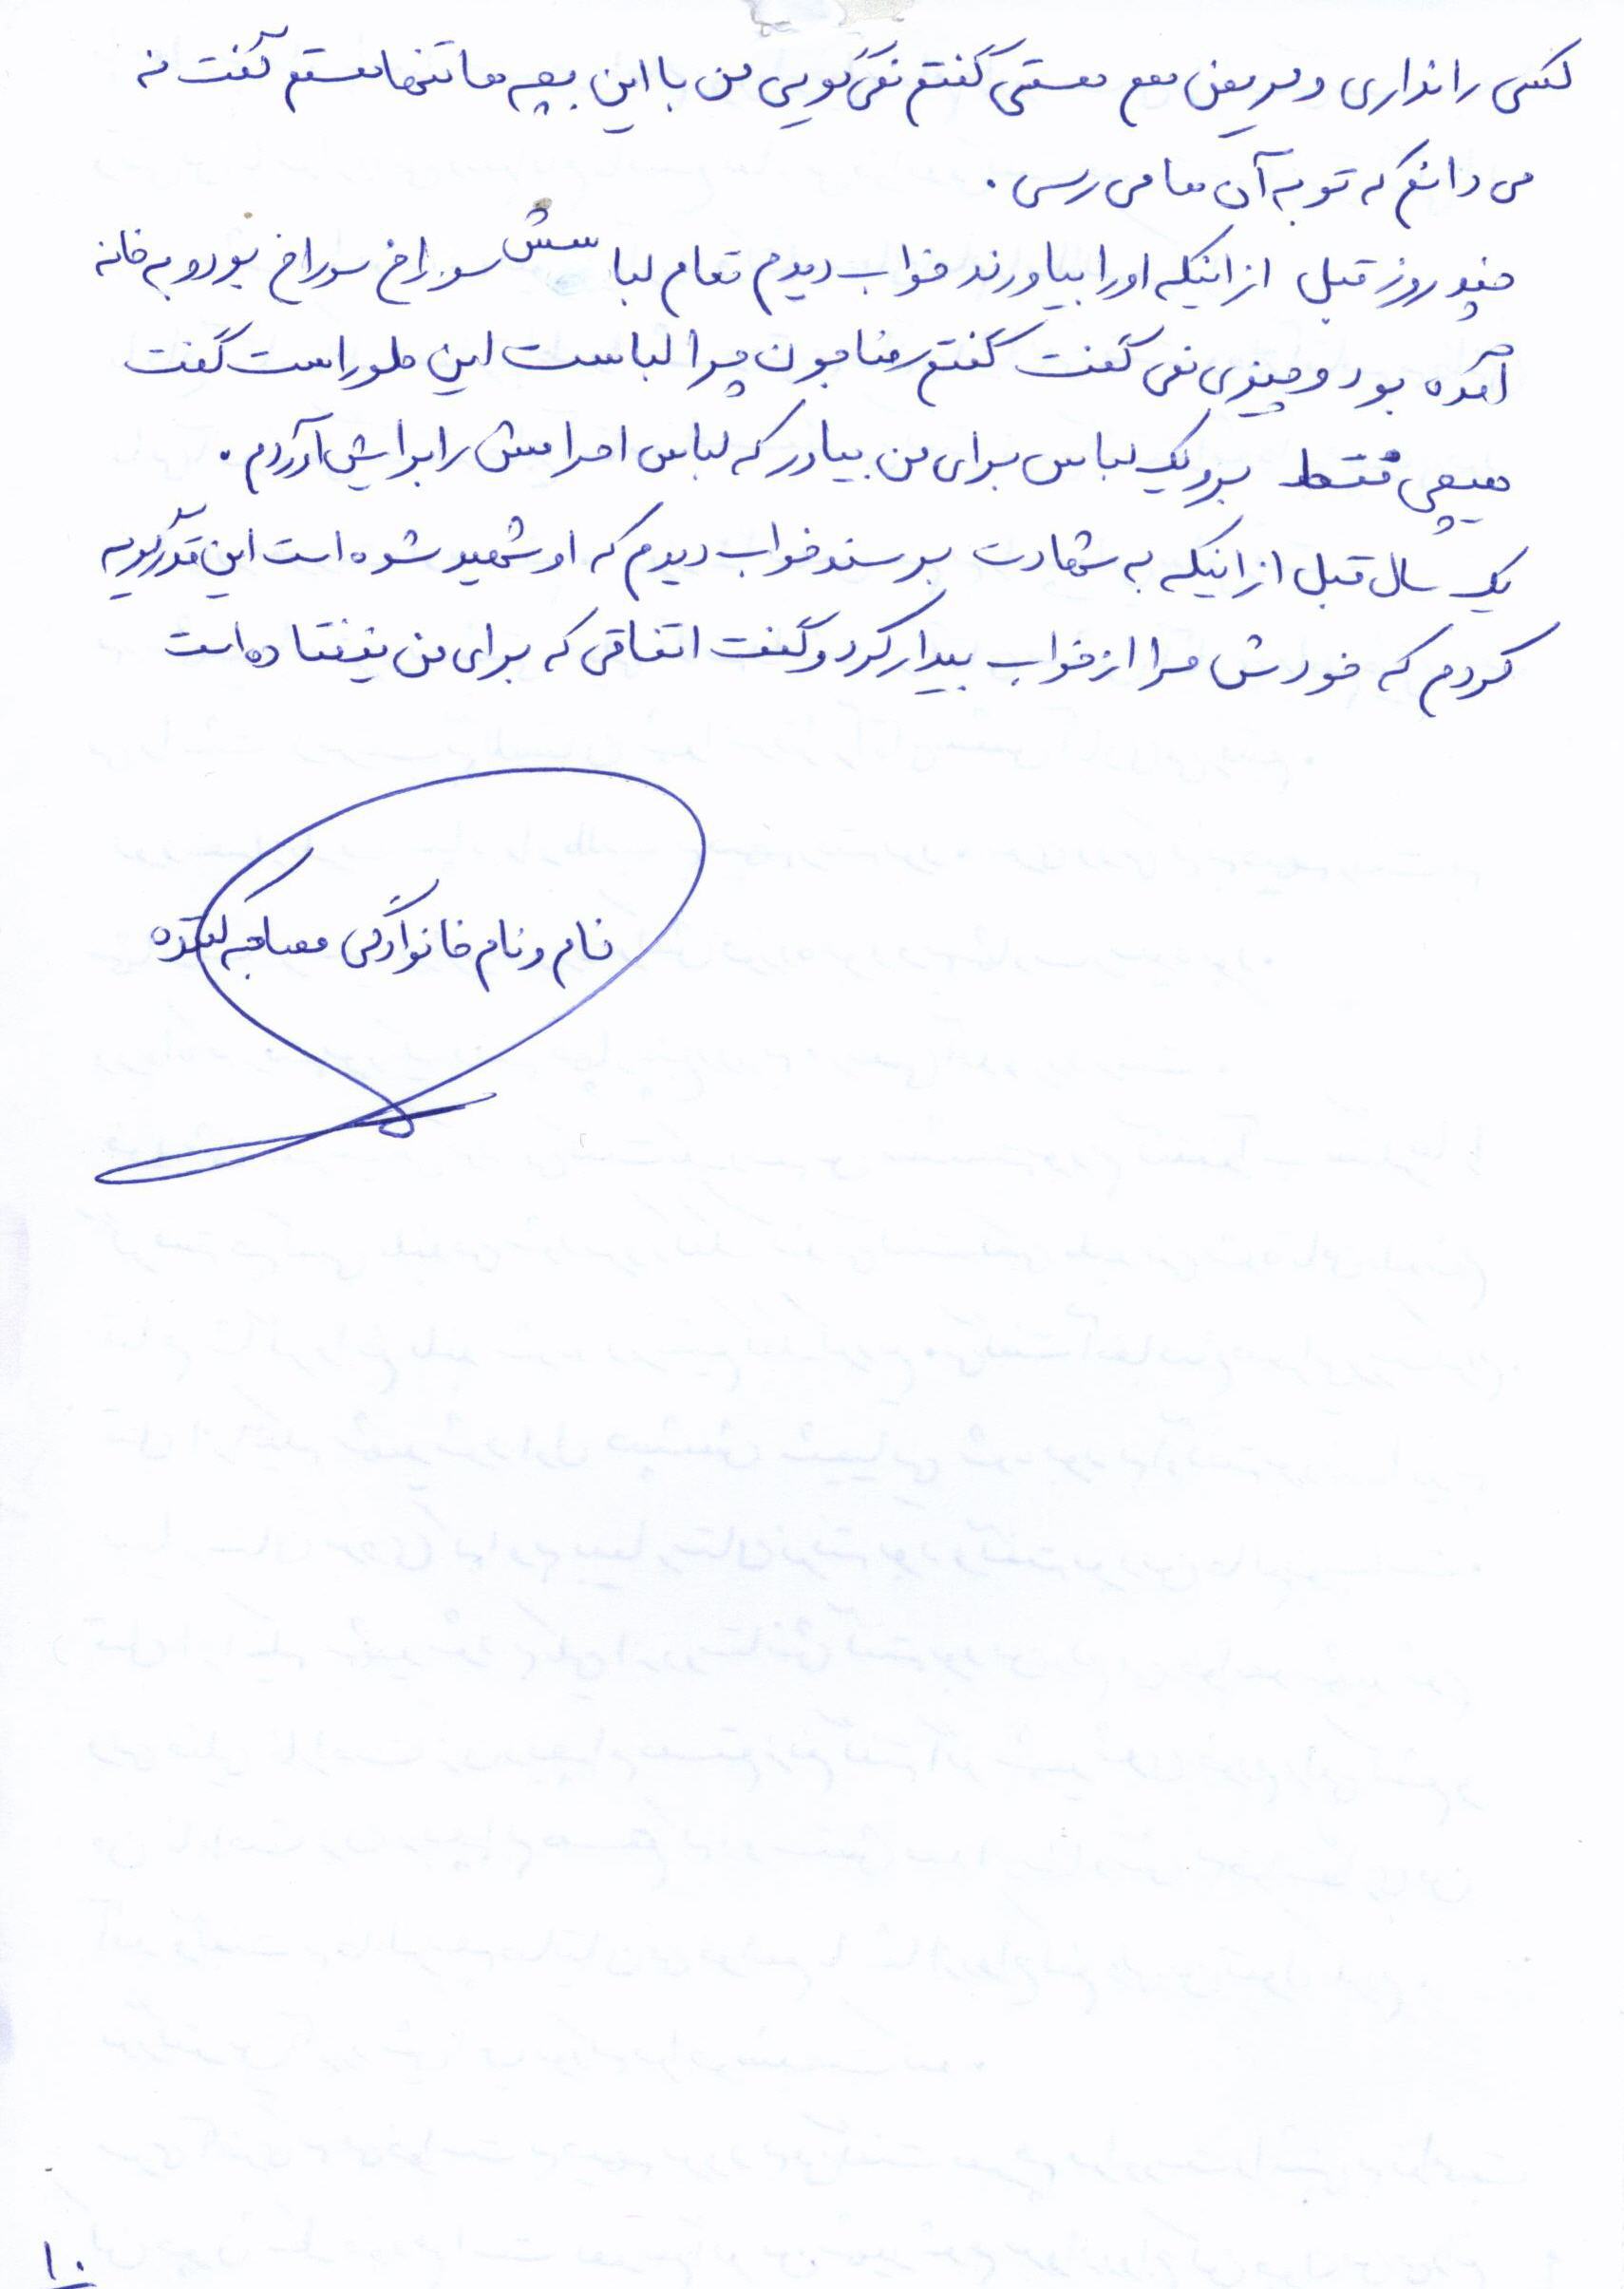 کسی را نداری و مریض هم هستی گفتم نمی گویی من با این بچه ها تنها هستم گفت نه
می دانم که تو به آن ها می رسی .
چند روز قبل از اینکه او را بیاورند خواب دیدم تمام لباسش سوراخ سوراخ بود و به خانه
آمده بود و چیزی نمی گفت گفتم رضا جون چرا لباست این طور است گفت
هیچی فقط برو یک لباس برای من بیاور که لباس احرامش را برایش آوردم .
یک سال قبل از اینکه به شهادت برسند خواب دیدم که او شهید شده است این قدر گریه
کردم که خودش مرا از خواب بیدار کرد و گفت اتفاقی که برای من نیفتاده است
نام و نام خانوادگی مصاحبه کننده
۱۰